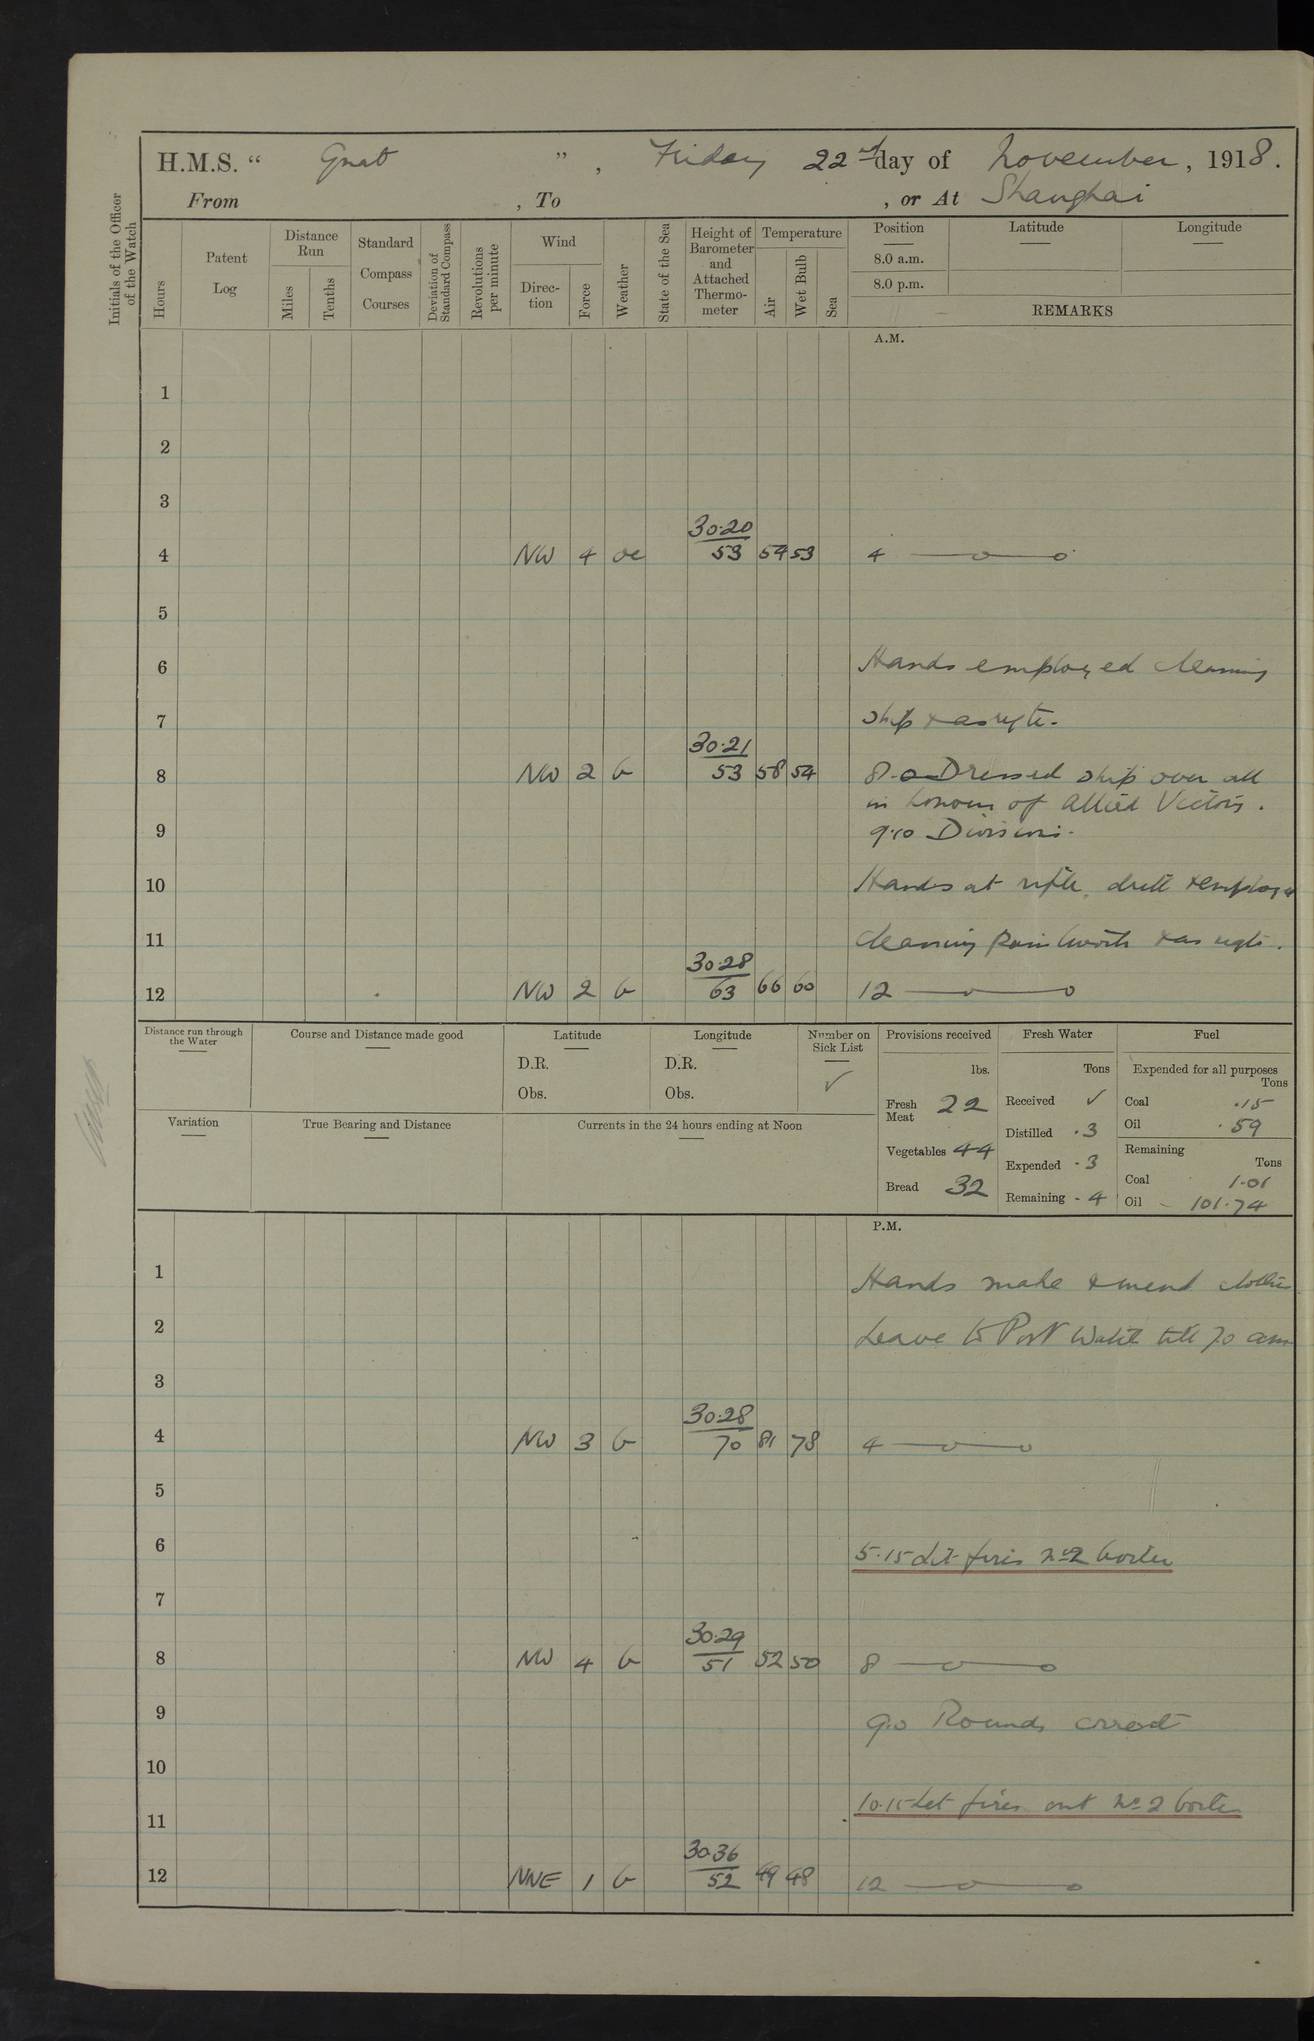 H.M.S. “ Gnat ” , Friday 22nd day of November , 1918.
From , To , or At Shanghai
Initials of the Officer of the Watch
Hours
Patent Log
Distance Run
Miles
Tenths
Standard Compass Courses
Deviation of Standard Compass
Revolutions per minute
Wind
Direction
Force
Weather
State of the Sea
Height of Barometer and Attached Thermometer
Temperature
Air
Wet Bulb
Sea
Position
Latitude
Longitude
8.0 a.m.
8.0 p.m.
REMARKS
A.M.
1
2
3
30.20
4 NW 4 oc 53 54 53 4
5
6 Hands employed cleaning
7 ship & as reqte.
30.21
8 NW 2 b 53 58 54 8.0 Dressed ship over all
in honour of Allied Victory.
9 9.10 Divisions.
10 Hands at rifle drill & employed
11 cleaning paintwork & as reqte.
30.28
12 NW 2 b 63 66 60 12
Distance run through the Water
Course and Distance made good
Latitude
D.R.
Obs.
Longitude
D.R.
Obs.
Number on Sick List
✓
Provisions received
lbs.
Fresh Meat 22
Vegetables 44
Bread 32
Fresh Water
Tons
Received ✓
Distilled .3
Expended .3
Remaining .4
Fuel
Expended for all purposes
Tons
Coal .15
Oil .59
Remaining
Tons
Coal 1.01
Oil 101.74
Variation
True Bearing and Distance
Currents in the 24 hours ending at Noon
P.M.
1 Hands make & mend clothes
2 Leave to Port Watch till 7.0 am
3
30.28
4 NW 3 b 70 81 78 4
5
6 5.15 Lit fires No 2 boiler
7
30.29
8 NW 4 b 51 52 50 8
9 9.0 Rounds correct
10
10.15 Let fires out No 2 boiler
11
30.36
12 NNE 1 b 52 49 48 12